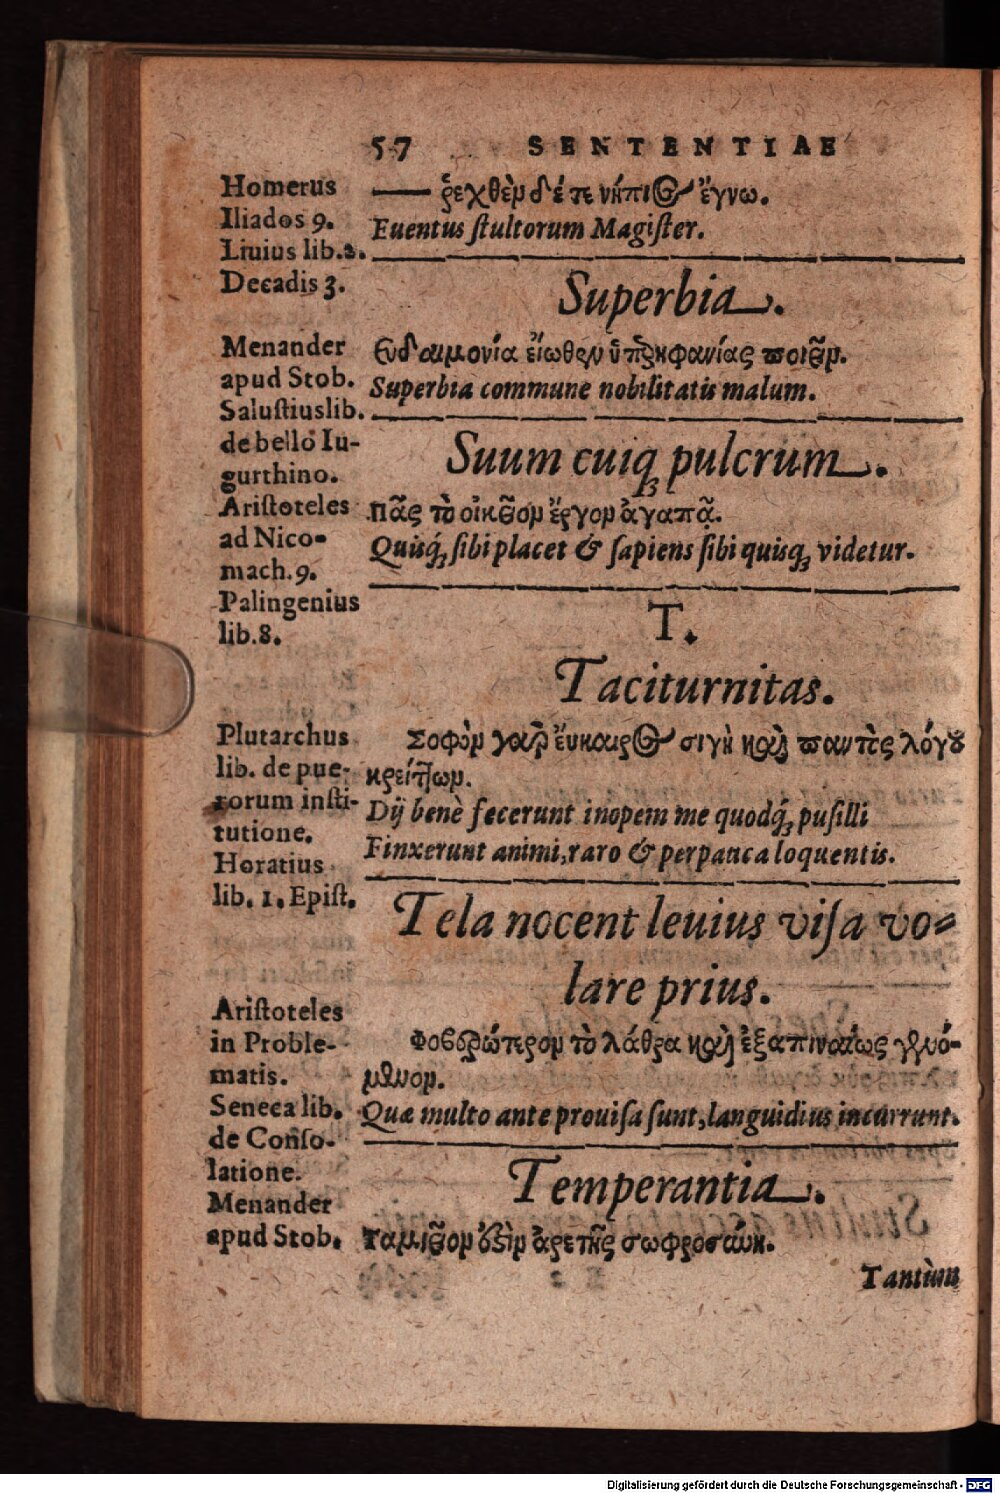 57 SENTENTIAE
Homerus
Iliados 9.
Liuius lib.2.
Decadis 3.
—— ῥεχθὲν δέ τε νήπιος ἔγνω.
Euentus ſtultorum Magiſter.
Superbia.
Menander
apud Stob.
Saluſtius lib.
de bello Iu-
gurthino.
Ευδαιμονία εἴωθεν ὑπερηφανίας ποιεῖν.
Superbia commune nobilitatis malum.
Suum cuiq; pulcrum.
Ariſtoteles
ad Nico-
mach.9.
Palingenius
lib.8.
πᾶς τὸ οἰκεῖον ἔργον ἀγαπᾷ.
Quisq́; ſibi placet & ſapiens ſibi quisq; videtur.
T.
Taciturnitas.
Plutarchus
lib. de pue-
rorum inſti-
tutione.
Horatius
lib. 1. Epiſt.
Σοφὸν γὰρ ἔυκαιρος σιγὴ καὶ παντὸς λόγου
κρείττων.
Dij benè fecerunt inopem me quodq́; puſilli
Finxerunt animi, raro & perpauca loquentis.
Tela nocent leuius viſa vo-
lare prius.
Ariſtoteles
in Proble-
matis.
Seneca lib.
de Conſo-
latione.
Φοβερώτερον τὸ λάθρα καὶ ἐξαπιναίως γενό-
μενον.
Quæ multo ante prouiſa ſunt, languidius incurrunt.
Temperantia.
Menander
apud Stob.
Ταμιεῖον ἐστὶν ἀρετῆς σωφροσύνη.
Tantùm
Digitalisierung gefördert durch die Deutsche Forschungsgemeinschaft - DFG